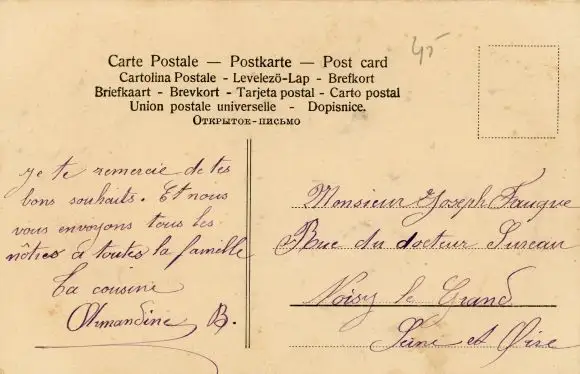 Carte Postale — Postkarte — Post card
Cartolina Postale - Levelezö-Lap - Brefkort
Briefkaart - Brevkort - Tarjeta postal - Carto postal
Union postale universelle - Dopisnice.
Открытое-письмо
45
Je te remercie de tes
bons souhaits. Et nous
vous envoyons tous les
nôtres à toutes la famille
Ta cousine
Armandine B.
Monsieur Joseph Fauque
Rue du docteur Sureau
Noisy le Grand
Seine et Oise